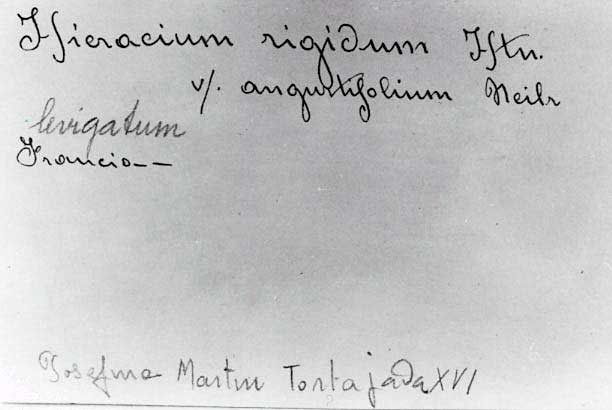 Hieracium rigidum Htn.
v/. angustifolium Neilr
levigatum
Francia--
Josefina Martin Tortajada XVI